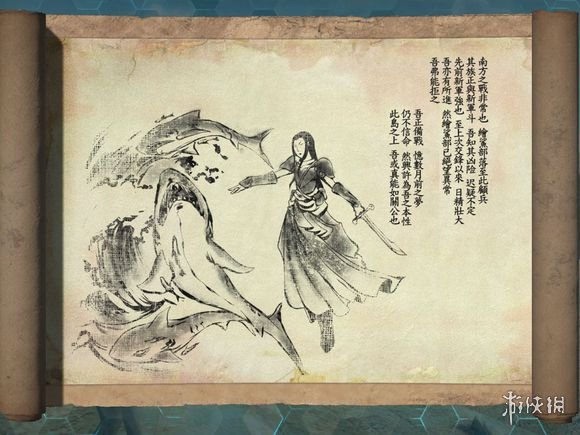 南方之戰非常也 繪鯊部落至此顧兵
其族正與新軍斗 吾知其凶險 迟疑不定
先前新軍強也 至上次交鋒以來 日精壯大
吾亦有所進 然繪鯊部已絕望異常
吾弗能拒之
吾正備戰 憶數月前之夢
仍不信命 然興許為吾之本性
此島之上 吾或真能如關公也
游侠網